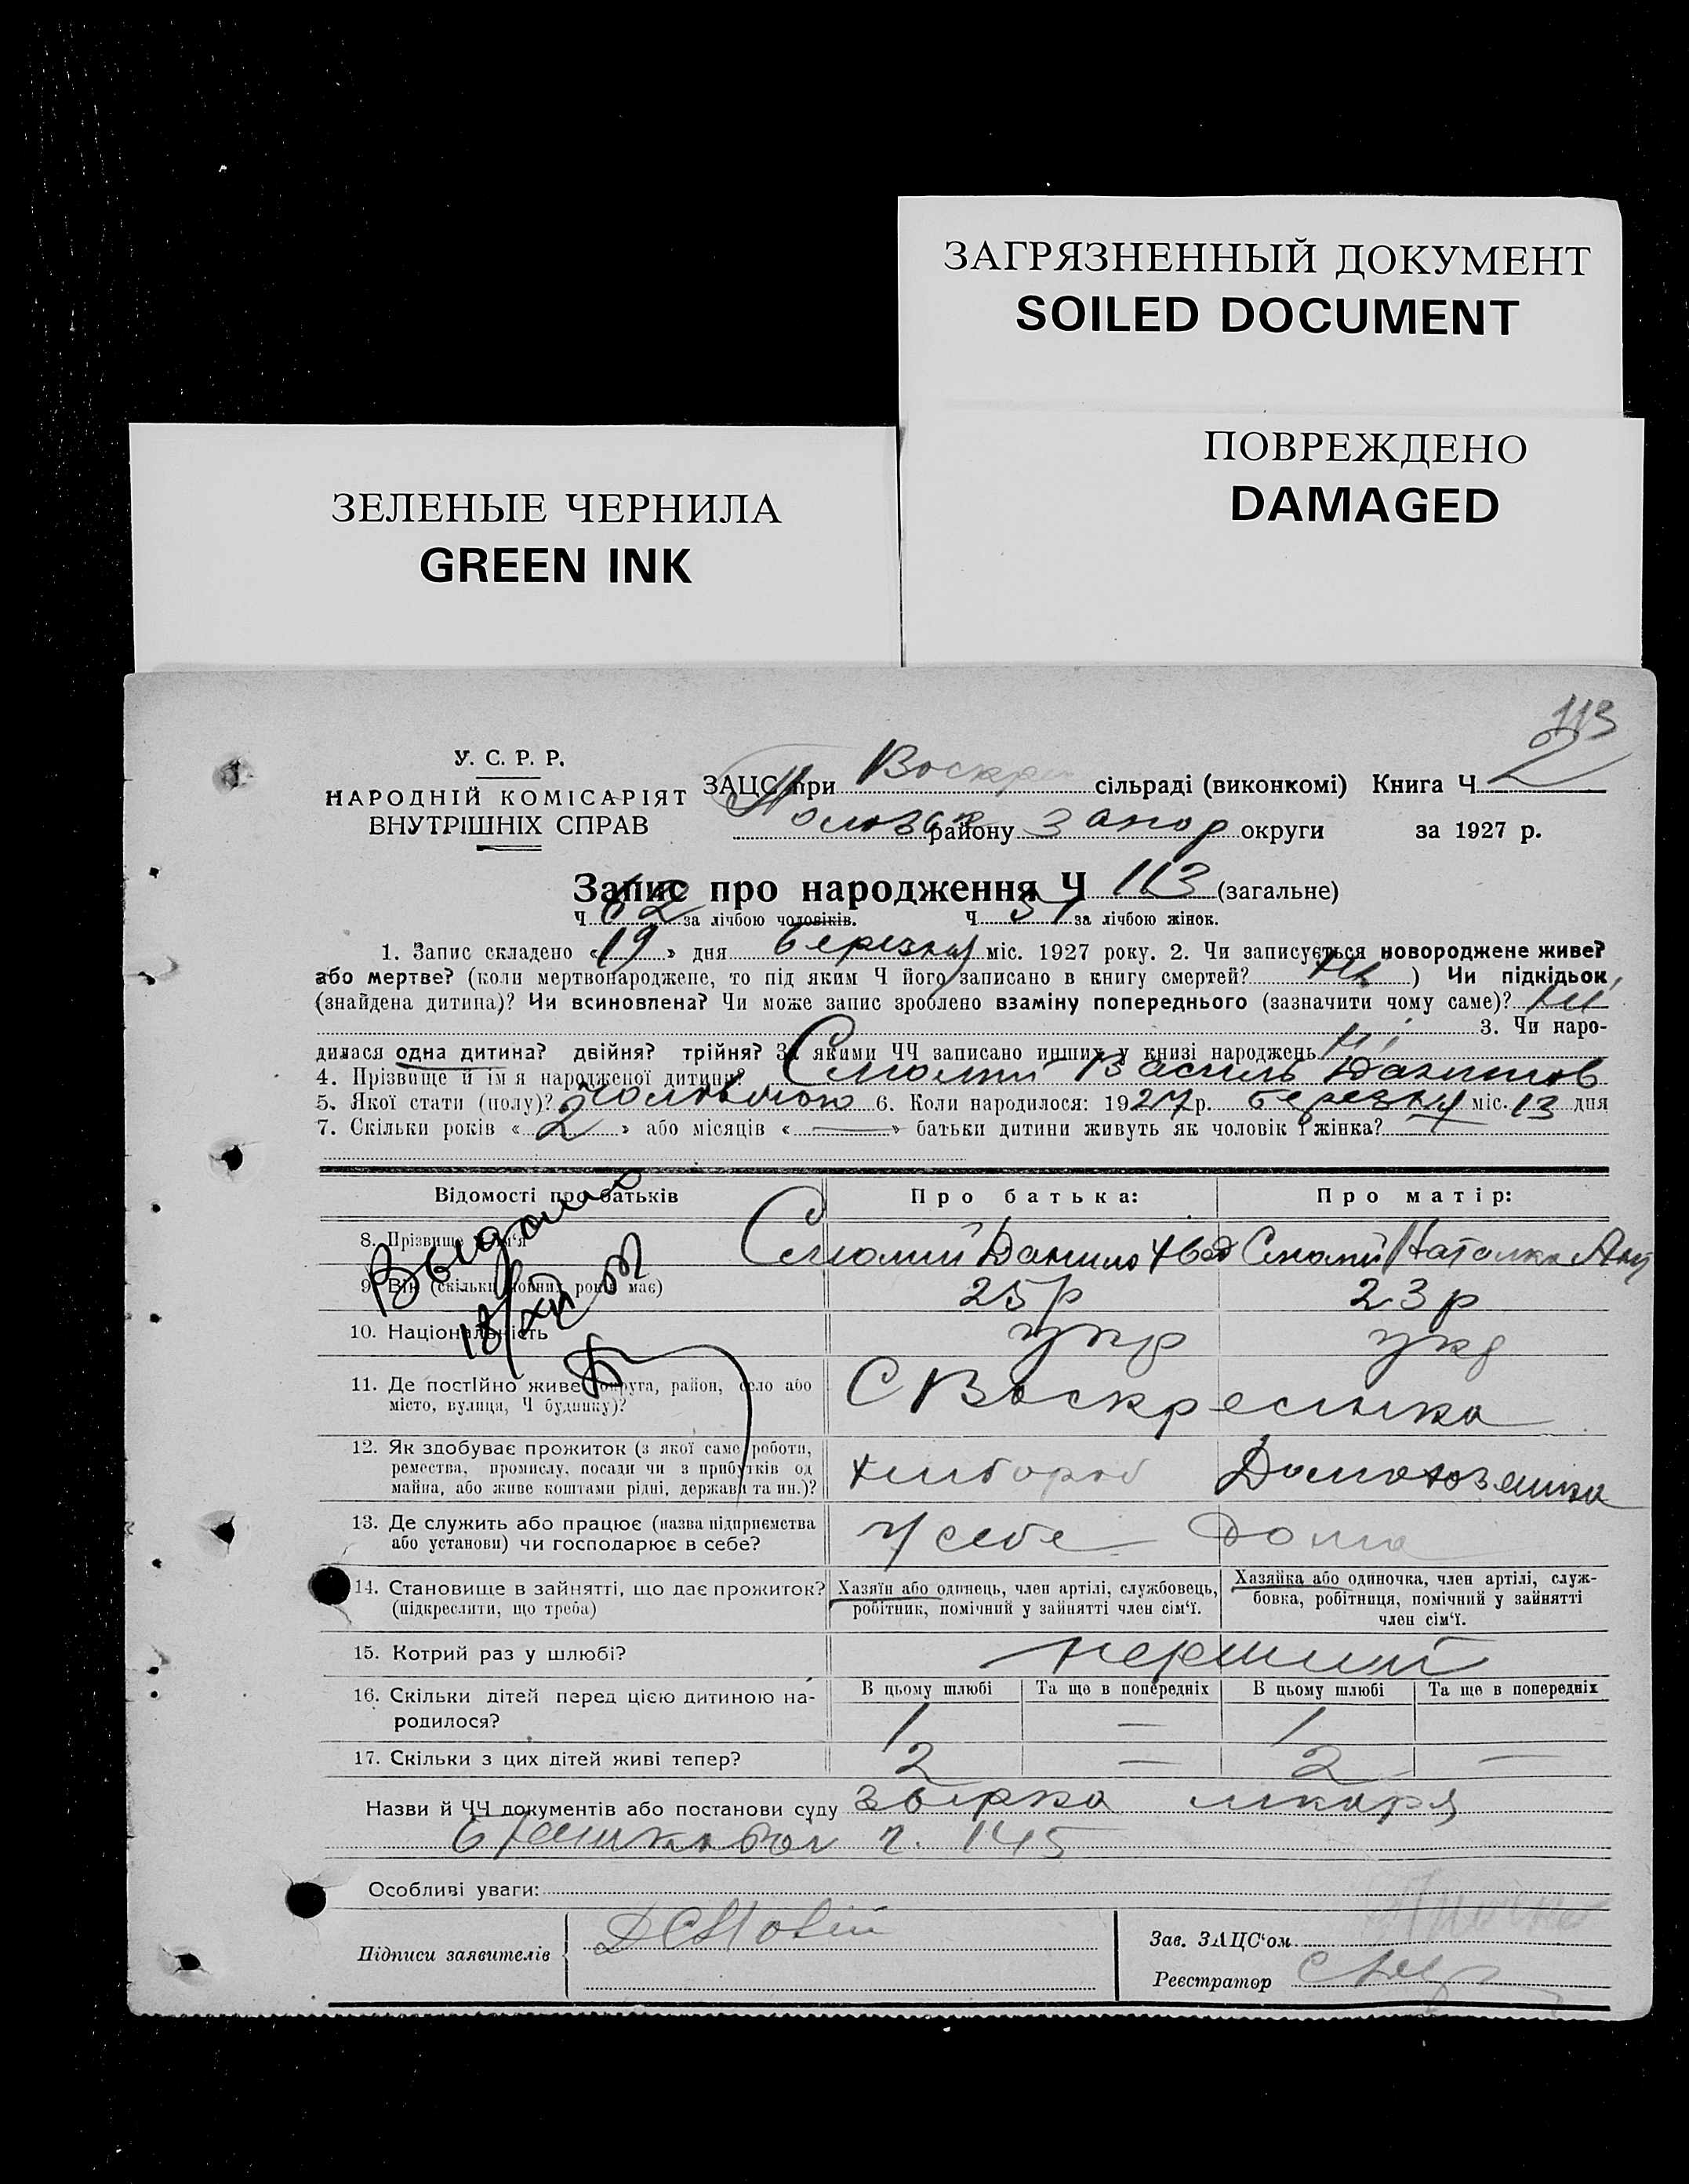 ЗАГРЯЗНЕННЫЙ ДОКУМЕНТ
SOILED DOCUMENT
ПОВРЕЖДЕНО
DAMAGED
ЗЕЛЕНЫЕ ЧЕРНИЛА
GREEN INK
113
У. С. Р. Р.
НАРОДНІЙ КОМІСАРІЯТ
ВНУТРІШНІХ СПРАВ
ЗАЦС при Воскре сільраді (виконкомі) Книга Ч 2
району Запор округи за 1927 р.
Запис про народження Ч 113 (загальне)
Ч 62 за лічбою чоловіків. Ч 51 за лічбою жінок.
1. Запис складено «19» дня березня міс. 1927 року. 2. Чи записується новороджене живе?
або мертве? (коли мертвонароджене, то під яким Ч його записано в книгу смертей? ні) Чи підкідьок
(знайдена дитина)? Чи всиновлена? Чи може запис зроблено взаміну попереднього (зазначити чому саме)? ні
3. Чи наро-
дилася одна дитина? двійня? трійня? За якими ЧЧ записано инших у книзі народжень ні
4. Прізвище й ім'я народженої дитини? Василь Данилов
5. Якої стати (полу)? 6. Коли народилося: 1927 р. березня міс. 13 дня
7. Скільки років «2» або місяців «—» батьки дитини живуть як чоловік і жінка?
Відомості про батьків Про батька: Про матір:
8. Прізвище й ім'я Данило Наталка
9. Вік (скільки повних років має) 25 р 23 р
10. Національність укр укр
11. Де постійно живе (округа, район, село або
місто, вулиця, Ч будинку)? С Воскресенка
12. Як здобуває прожиток (з якої саме роботи,
ремества, промислу, посади чи з прибутків од
майна, або живе коштами рідні, держави та ин.)? хлібороб Домохозяйка
13. Де служить або працює (назва підприємства
або установи) чи господарює в себе? У себе дома
14. Становище в зайнятті, що дає прожиток?
(підкреслити, що треба)
Хазяїн або одинець, член артілі, службовець,
робітник, помічний у зайнятті член сім'ї.
Хазяйка або одиночка, член артілі, служ-
бовка, робітниця, помічний у зайнятті
член сім'ї.
15. Котрий раз у шлюбі? перший
16. Скільки дітей перед цією дитиною на-
родилося?
В цьому шлюбі Та ще в попередніх В цьому шлюбі Та ще в попередніх
1 — 1
17. Скільки з цих дітей живі тепер? 2 — 2 —
Назви й ЧЧ документів або постанови суду
ч. 145
Особливі уваги:
Підписи заявителів
Зав. ЗАЦС'ом
Реєстратор